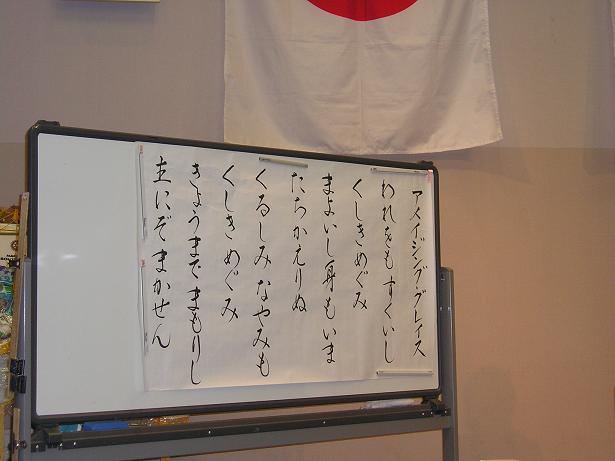 アメイジング・グレイス
われをもすくいし
くしきめぐみ
まよいし身もいま
たちかえりぬ
くるしみなやみも
くしきめぐみ
きょうまでまもりし
主にぞまかせん